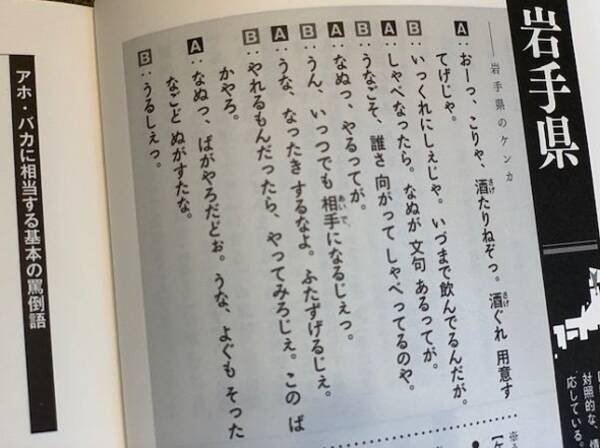 岩手県
――岩手県のケンカ
A：おーっ、こりゃ、酒たりねぞっ。酒ぐれ 用意す
てげじゃ。
B：いっくれにしぇじゃ。いづまで飲んでるんだが。
A：しゃべなったら。なぬが 文句 あるってが。
B：うなごそ、誰さ 向がって しゃべってるのや。
A：なぬっ、やるってが。
B：うん、いっつでも 相手になるじぇっ。
A：うな、なったき するなよ。ふたずげるじぇ。
B：やれるもんだったら、やってみろじぇ。この ば
かやろ。
A：なぬっ、ばがやろだどぉ。うな、よぐも そった
なごど ぬがすたな。
B：うるしぇっ。
アホ・バカに相当する基本の罵倒語
対照的な、
応している。